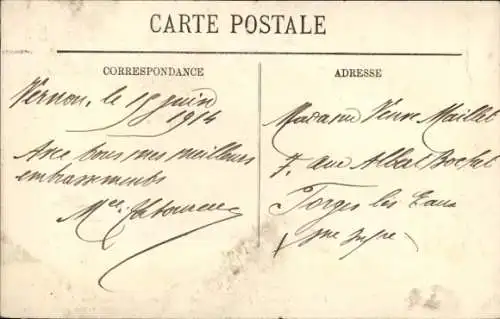 CARTE POSTALE
CORRESPONDANCE
Vernon, le 18 juin
1914
Avec tous mes meilleurs
embrassements
ADRESSE
Madame Veuve Maillet
7, rue Albert Bochet
Forges les Eaux
Sne Infre